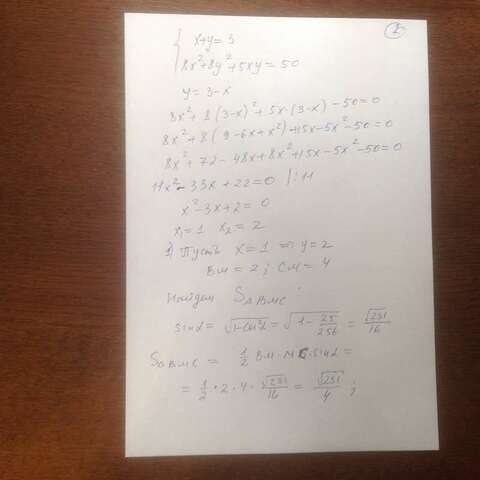 2
x+y=3
8x²+8y²+5xy=50
y=3-x
8x²+8(3-x)²+5x·(3-x)-50=0
8x²+8(9-6x+x²)+15x-5x²-50=0
8x²+72-48x+8x²+15x-5x²-50=0
11x²-33x+22=0 |:11
x²-3x+2=0
x₁=1 x₂=2
1) Пусть x=1 ⇒ y=2
BM=2; CM=4
Найдем S△BMC:
sinα=√(1-cos²α)=√(1-25/256)=√231/16
S△BMC=1/2 BM·MC·sinα=
=1/2·2·4·√231/16=√231/4;